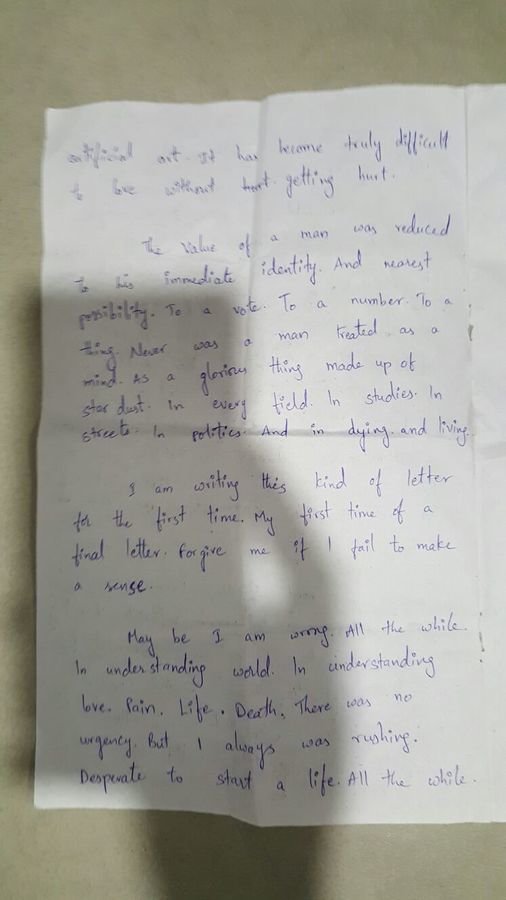 artificial art. It has become truly difficult
to love without getting hurt.
The value of a man was reduced
To his immediate identity. And nearest
possibility. To a vote. To a number. To a
thing. Never was a man treated as a
mind. As a glorious thing made up of
star dust. In every field. In studies. In
streets. In politics. And in dying. and living.
I am writing this kind of letter
for the first time. My first time of a
final letter. Forgive me if I fail to make
a sense.
May be I am wrong. All the while.
In understanding world. In understanding
love. Pain. Life. Death. There was no
urgency. But I always was rushing.
Desperate to start a life. All the while.